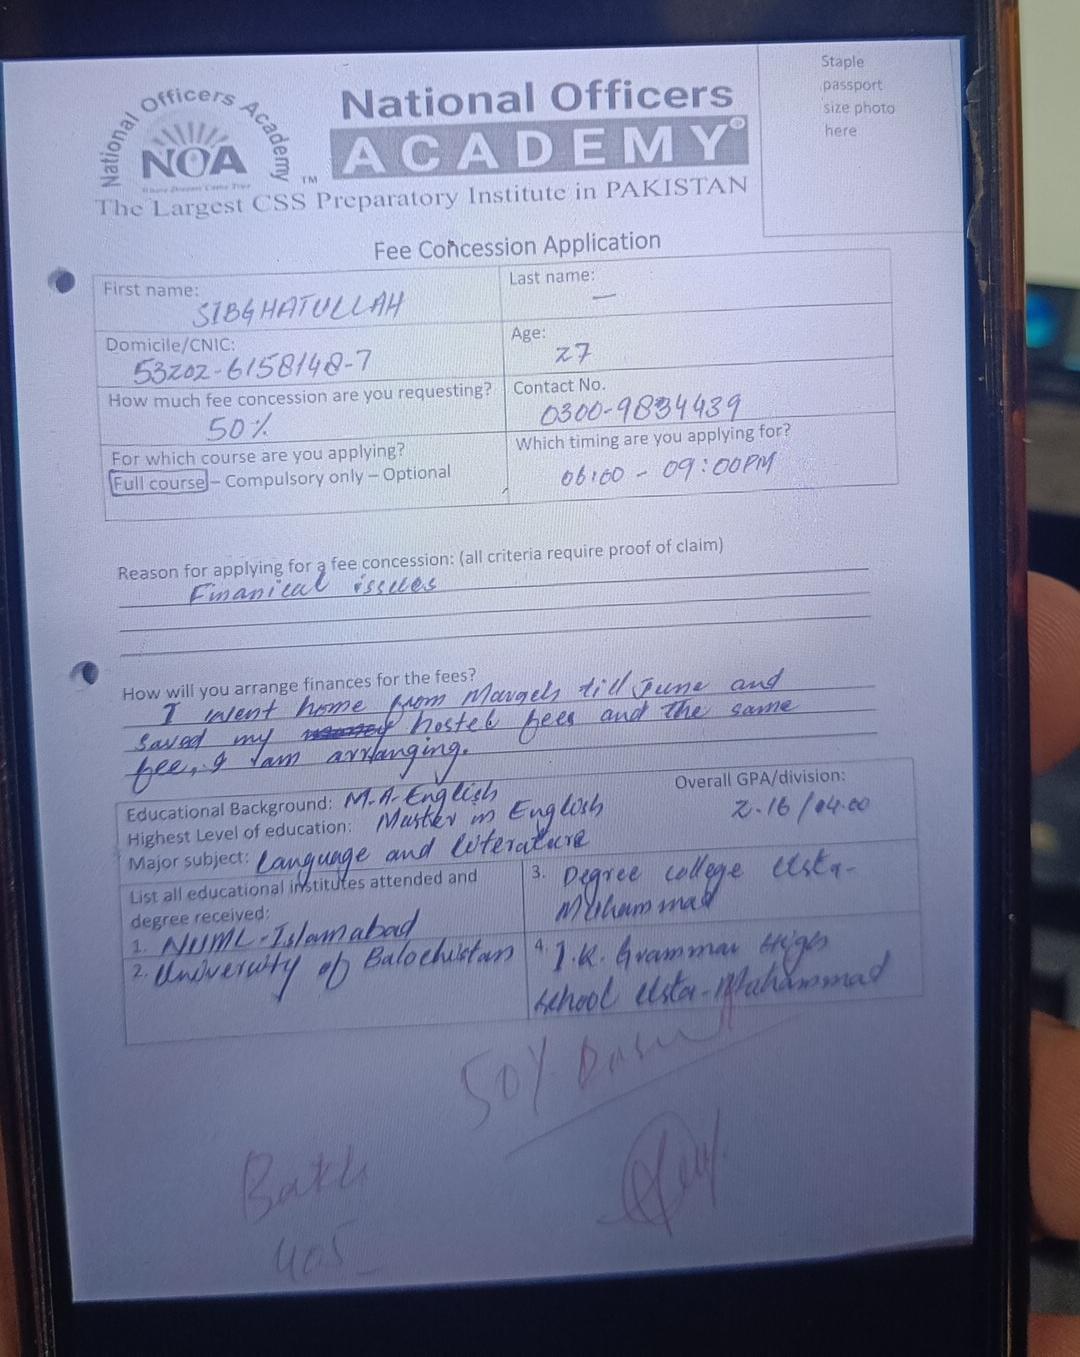 National Officers Academy
NOA
Where Dreams Come True
TM
National Officers
ACADEMY®
The Largest CSS Preparatory Institute in PAKISTAN
Staple
passport
size photo
here
Fee Concession Application
First name: SIBGHATULLAH
Last name: —
Domicile/CNIC: 53202-6158148-7
Age: 27
How much fee concession are you requesting? 50%
Contact No. 0300-9834439
For which course are you applying?
Full course – Compulsory only – Optional
Which timing are you applying for?
06:00 - 09:00PM
Reason for applying for a fee concession: (all criteria require proof of claim)
Finanical issues
How will you arrange finances for the fees?
I went home from March till June and
saved my hostel fees and the same
fee, I am arranging.
Educational Background: M.A. English
Overall GPA/division:
2.16/04.00
Highest Level of education: Master in English
Major subject: Language and literature
List all educational institutes attended and
degree received:
1. NUML-Islamabad
2. University of Balochistan
3. Degree college Usta-
Muhammad
4. J.K. Grammar High
school Usta-Muhammad
50%
Batch
405